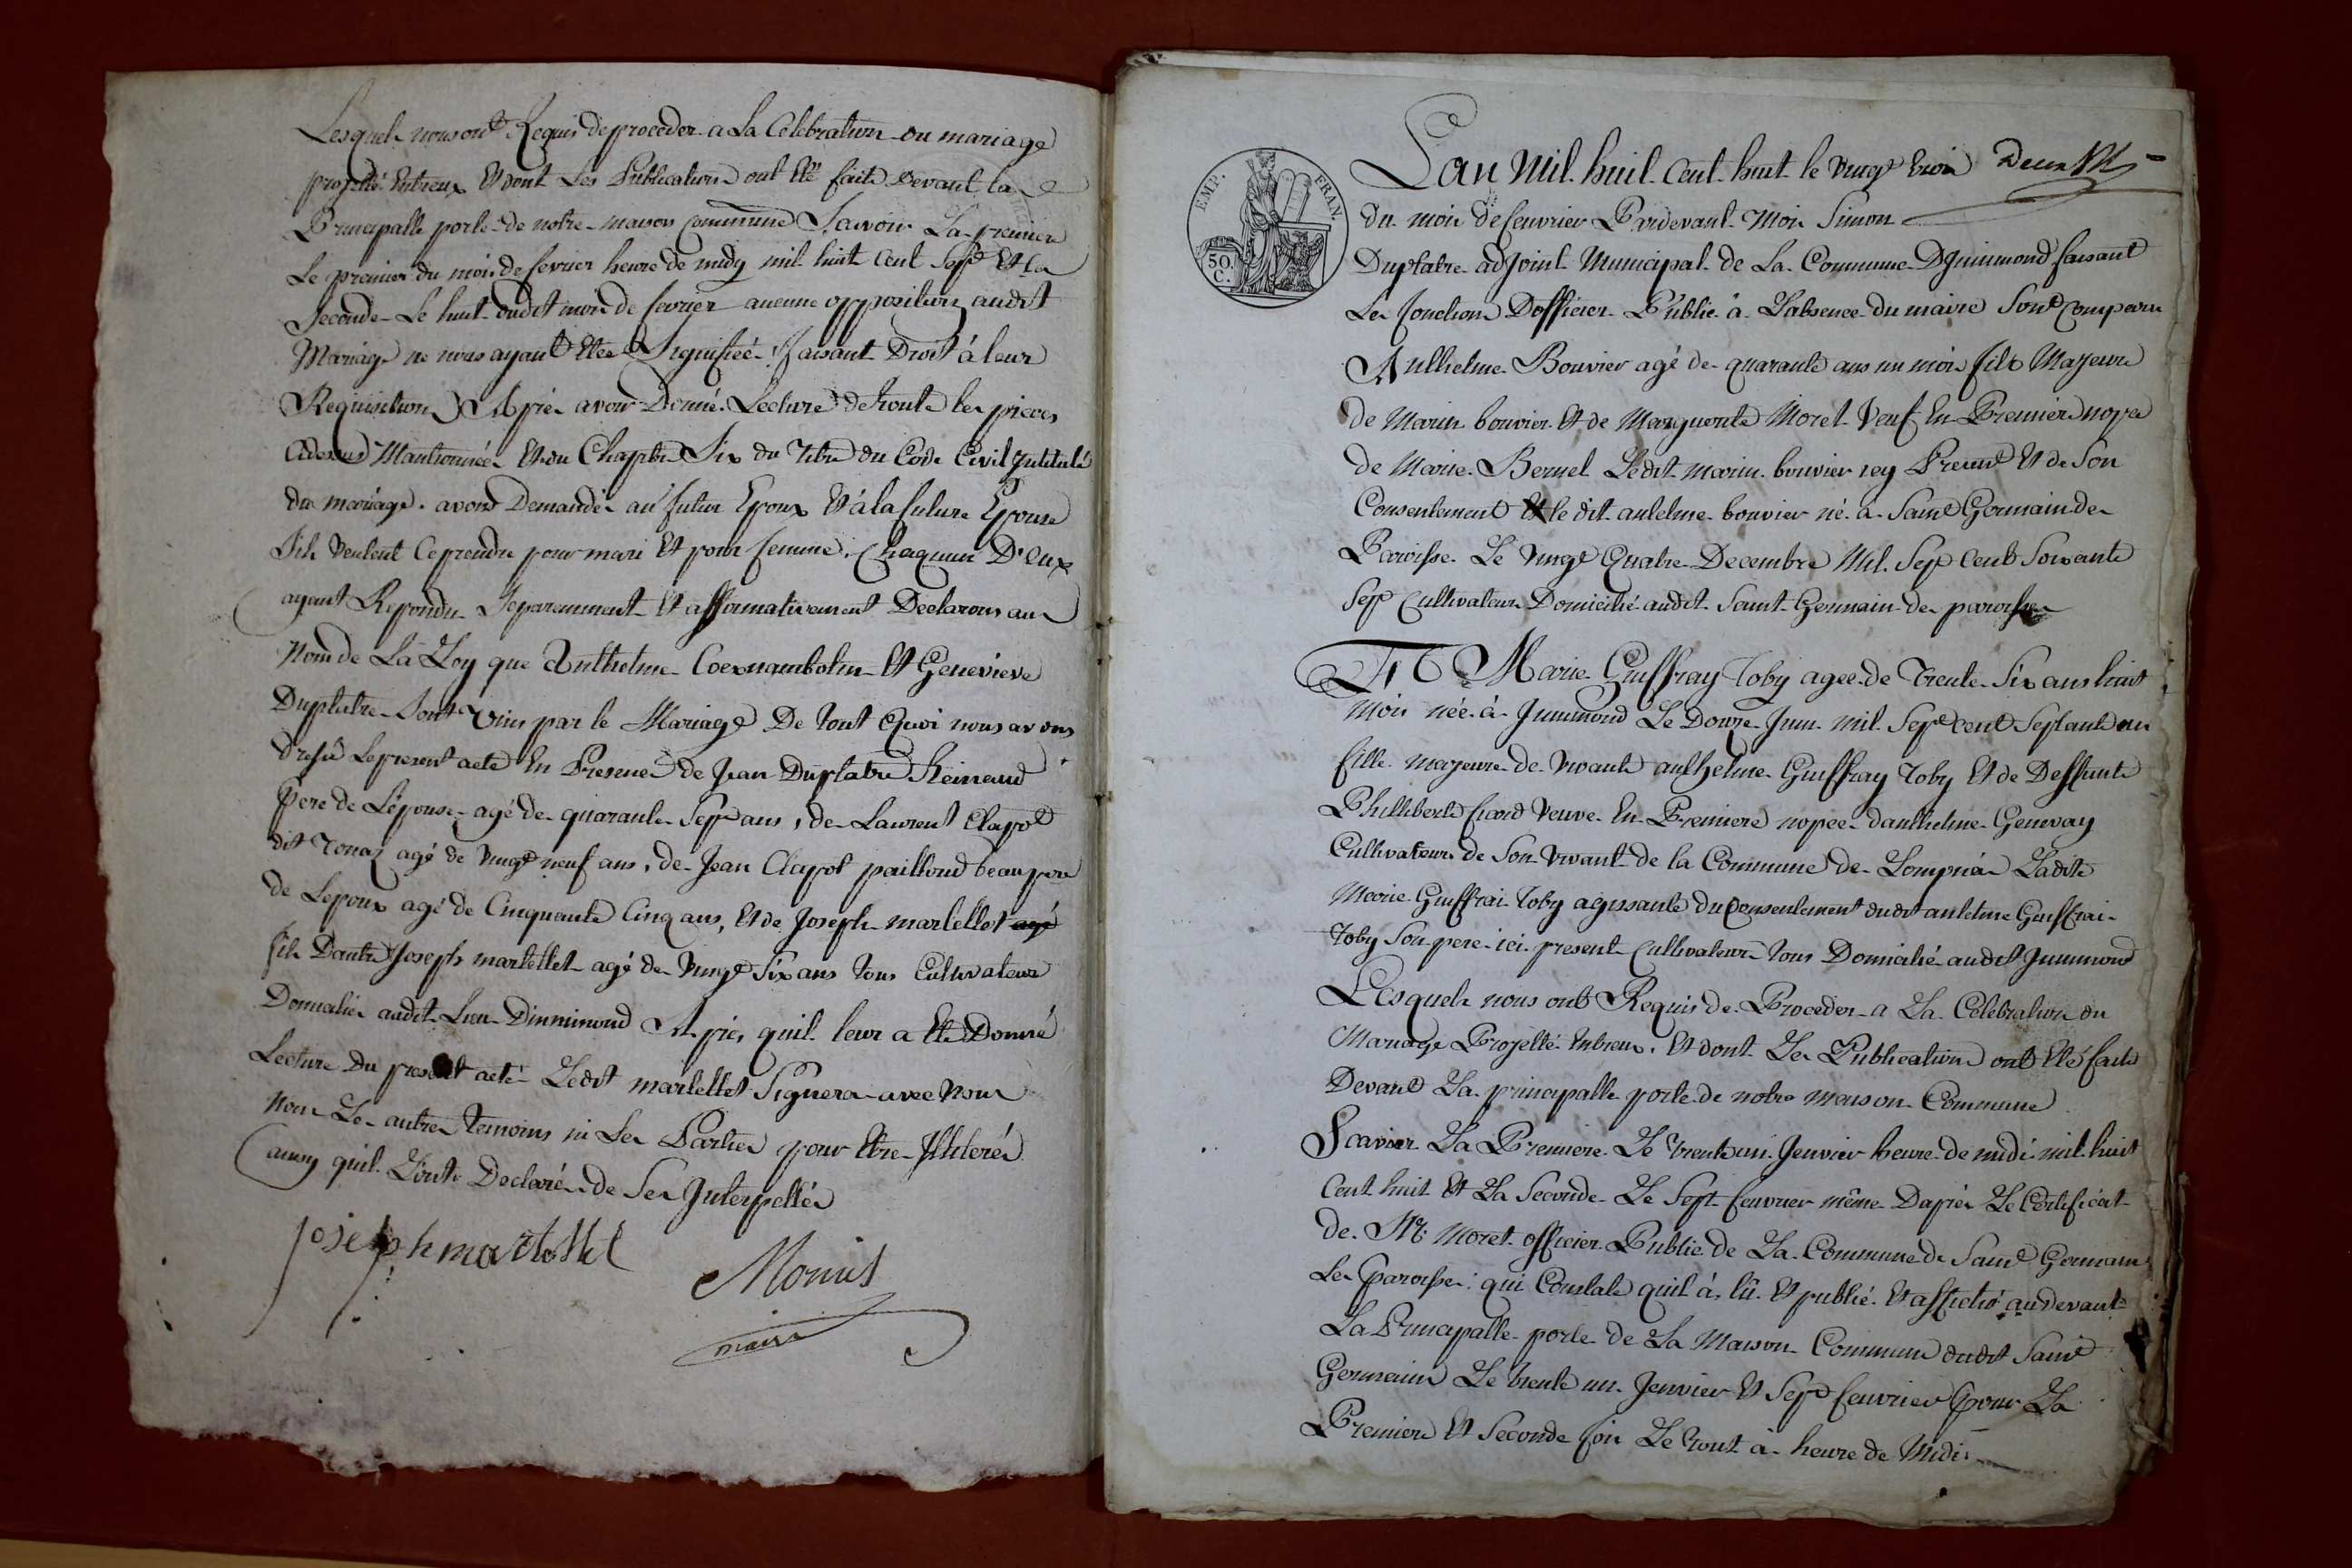 Lesquels nous ont Requis de proceder a La Celebration du mariage
projetté Entreux Et dont Les Publications ont Eté faite Devant la
Principalle porte de notre maison Commune Scavoir La premiere
Le premier du mois de fevrier heure de midy mil huit Cent Sept Et la
Seconde Le huit dudit mois de fevrier aucune opposition audit
Mariage ne nous ayant Etee Signifieé faisant Droit à leur
Requisition Aprés avoir Donné Lecture de toute les pieces
Cidessus Mantionnée Et du Chapitre Six du Titre du Code Civil Jntitulé
du mariage. avons Demandé au futur Epoux Et à la future Epouse
Sils Veulent Ceprendre pour mari Et pour femme. Chaqun D'eux
ayant Repondu Separemment Et affirmativement Declarons au
Nom de La Loy que Anthelme Et Genevieve
Duplatre Sont Vnis par le Mariage De tout Quoi nous avons
Dressé Lepresent acte En Presence de Jean Duplatre Reinaud
Pere de Lépouse agé de quarante Sept ans, de Laurent Clapot
dit Tonaz agé de Vingt neuf ans, de Jean Clapot paillond beaupere
de Lepoux agé de Cinquante Cinq ans, Et de Joseph martellet agé
fils Dautre Joseph martellet agé de Vingt Six ans tous Cultivateur
Domicilié audit Lieu Dinnimond Aprés quil leur a Eté Donné
Lecture Du present acte Ledit martellet Signera avec Nous
Non Les autres temoins ni Les Parties pour Etre Jlliteré
ainsy quil Lont Declaré de Ses Jnterpellés
joseph martellet
Monnet
maire
EMP. FRAN.
50. C.
Lan Mil. huit Cent huit le Vingt trois Deux
du mois de feuvrier Pardevant Moi Simon
Duplatre adjoint Municipal de La Commune Djnnimond faisant
Les fonctions Dofficier Public à Labsence du maire Sont Comparu
Anthelme Bouvier agé de quarante ans un mois fils Majeure
de Marin bouvier Et de Marguerite Moret Veuf En Premiere nopce
de Marie Bernel Ledit marin bouvier icy Present Et de Son
Consentement Et le dit antelme bouvier né à Saint Germain de
Paroisse Le Vingt Quatre Decembre Mil Sept Cent Soixante
Sept Cultivateur Domicilié audit Saint Germain de paroisse
Et Marie Guiffray Toby agée de Trente Six ans huit
mois née à Jnnimond Le Douze Juin mil Sept cent Septante un
fille majeure de Vivant anthelme Guiffray Toby Et de Deffunte
Philliberte Veuve En Premiere nopce danthelme Genevay
Cultivateur de Son Vivant de la Commune de Lompnas Ladite
Marie Guiffrai Toby agissante du Consentement dudit antelme Guiffrai
Toby Son pere ici present Cultivateur tous Domicilié audit Jnnimond
Lesquels nous ont Requis de Proceder a La Celebration du
Mariage Projetté Entreux, Et dont Les Publications ont Eté faite
Devant La principalle porte de notre maison Commune
Scavoir La Premiere Le trente un Jenvier heure de midi mil huit
Cent huit Et La Seconde Le Sept feuvrier même Daprés Le Certificat
de Mr. Moret officier Public de La Commune de Saint Germain
Les paroisse qui Constate quil à lû Et publié Et affiché au devant
La Principalle porte de La Maison Commune dudit Saint
Germain Le trente un Jenvier Et Sept feuvrier pour La
Premiere Et Seconde fois Le tout à heure de Midi